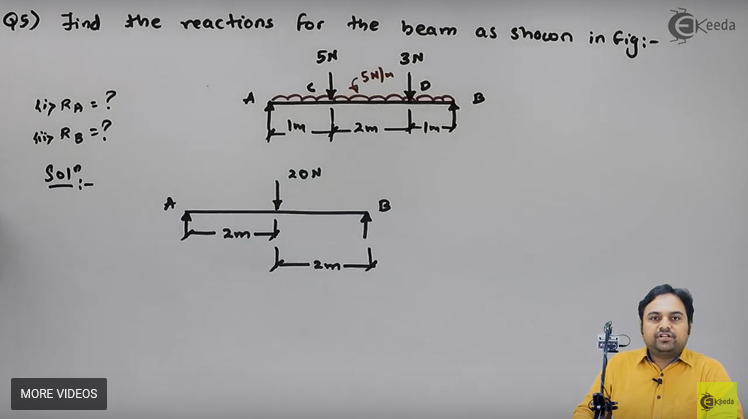 Q5) Find the reactions for the beam as shown in fig:-
EKeeda
5N 3N
A C 5N/m D B
1m 2m 1m
(i) RA = ?
(ii) RB = ?
Solⁿ:-
20N
A B
2m
2m
MORE VIDEOS
EKeeda